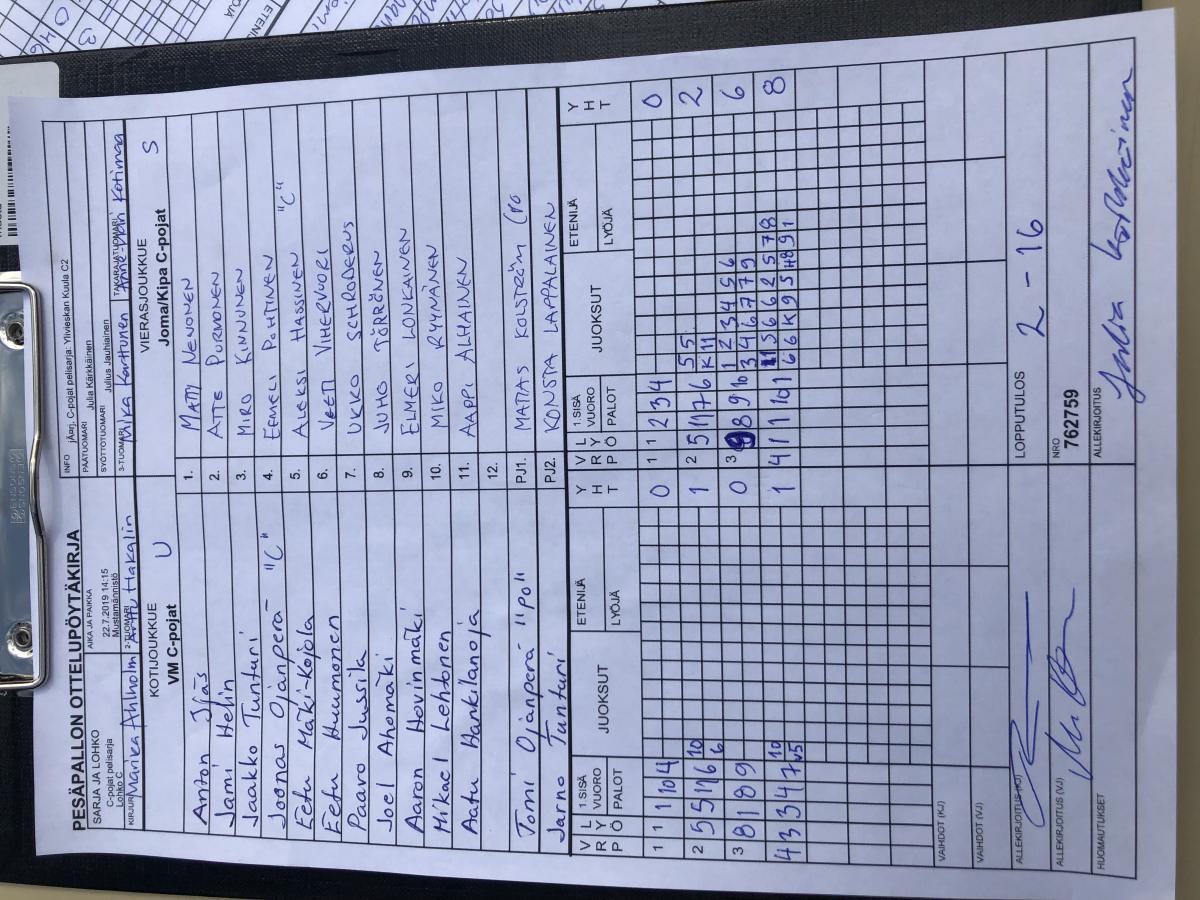 PESÄPALLON OTTELUPÖYTÄKIRJA
SARJA JA LOHKO
C-pojat pelisarja
Lohko C
AIKA JA PAIKKA
22.7.2019 14:15
Mustamännistö
INFO
C-pojat pelisarja: Ylivieskan Kuula C2
PÄÄTUOMARI
Julia Kärkkäinen
SYÖTTÖTUOMARI
Julius Jauhiainen
KIRJURI
Marika Ahlholm
2-TUOMARI
Hakalin
3-TUOMARI
Mika Karttunen
TAKARAJATUOMARI
Kotimaa
KOTIJOUKKUE
VM C-pojat
U
VIERASJOUKKUE
Joma/Kipa C-pojat
S
Anton Iljäs
1. MATTI NENONEN
Jami Helin
2. ATTE PURMONEN
Jaakko Tunturi
3. MIRO KINNUNEN
Joonas Ojanperä "C"
4. EEMELI POHTINEN
Eetu Mäki-Kojola
5. ALEKSI HASSINEN "C"
Eetu Huumonen
6. VEETI VIHERVUORI
Paavo Jussila
7. UKKO SCHRODERUS
Joel Ahomäki
8. JUHO TÖRRÖNEN
Aaron Hovinmäki
9. ELMERI LONKAINEN
Mikael Lehtonen
10. MIKO RYYNÄNEN
Aatu Hankilanoja
11. AAPPI ALHAINEN
12.
Tomi Ojanperä "PO"
PJ1. MATIAS KOLSTRÖM (PO
Jarno Tunturi
PJ2. KONSTA LAPPALAINEN
VRP LYÖ 1.SISÄ VUORO PALOT JUOKSUT ETENIJÄ LYÖJÄ YHT
VRP LYÖ 1.SISÄ VUORO PALOT JUOKSUT ETENIJÄ LYÖJÄ YHT
1 1 1 10 4 0
1 1 2 3 4 0
2 5 5 11 6 10 6 1
2 5 11 7 6 5 5 K 11 2
3 8 1 8 9 0
3 8 9 10 1 2 3 4 5 6 3 4 6 7 7 9 6
4 3 3 4 7 10 V5 1
4 1 1 10 1 11 5 6 6 2 5 7 8 6 6 K 9 5 H8 9 1 8
VAIHDOT (KJ)
VAIHDOT (VJ)
ALLEKIRJOITUS (KJ)
LOPPUTULOS
2 - 16
ALLEKIRJOITUS (VJ)
NRO
762759
HUOMAUTUKSET
ALLEKIRJOITUS
Julia Kärkkäinen